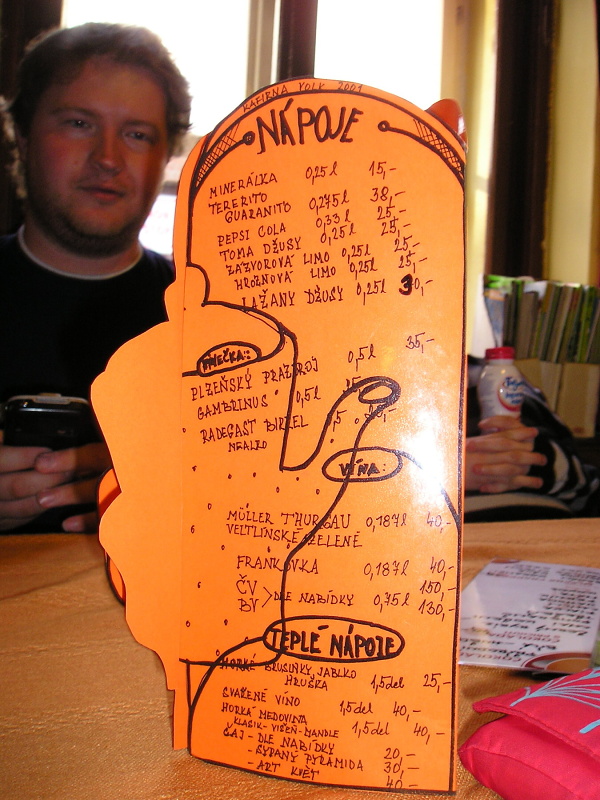 KAFIRNA VOLK 2009
NÁPOJE
MINERÁLKA 0,25l 15,-
TERERITO
GUARANITO 0,275l 38,-
PEPSI COLA 0,33l 25,-
TOMA DŽUSY 0,25l 25,-
ZÁZVOROVÁ LIMO 0,25l 25,-
HROZNOVÁ LIMO 0,25l 25,-
LAŽANY DŽUSY 0,25l 30,-
PLZEŇSKÝ PRAZDROJ 0,5l 35,-
GAMBRINUS 0,5l
RADEGAST BIRELL
NEALKO
VÍNA:
MÜLLER THURGAU 0,187l 40,-
VELTLINSKÉ ZELENÉ
FRANKOVKA 0,187l 40,-
ČV 150,-
BV DLE NABÍDKY 0,75l 130,-
TEPLÉ NÁPOJE
HORKÉ BRUSINKY, JABLKO
HRUŠKA 1,5del 25,-
SVAŽENÉ VÍNO 1,5del 40,-
HORKÁ MEDOVINA
KLASIK-VIŠEŇ-MANDLE 1,5del 40,-
ČAJ - DLE NABÍDKY
- SYPANÝ PYRAMIDA 20,-
- ART KVĚT 30,-
40,-